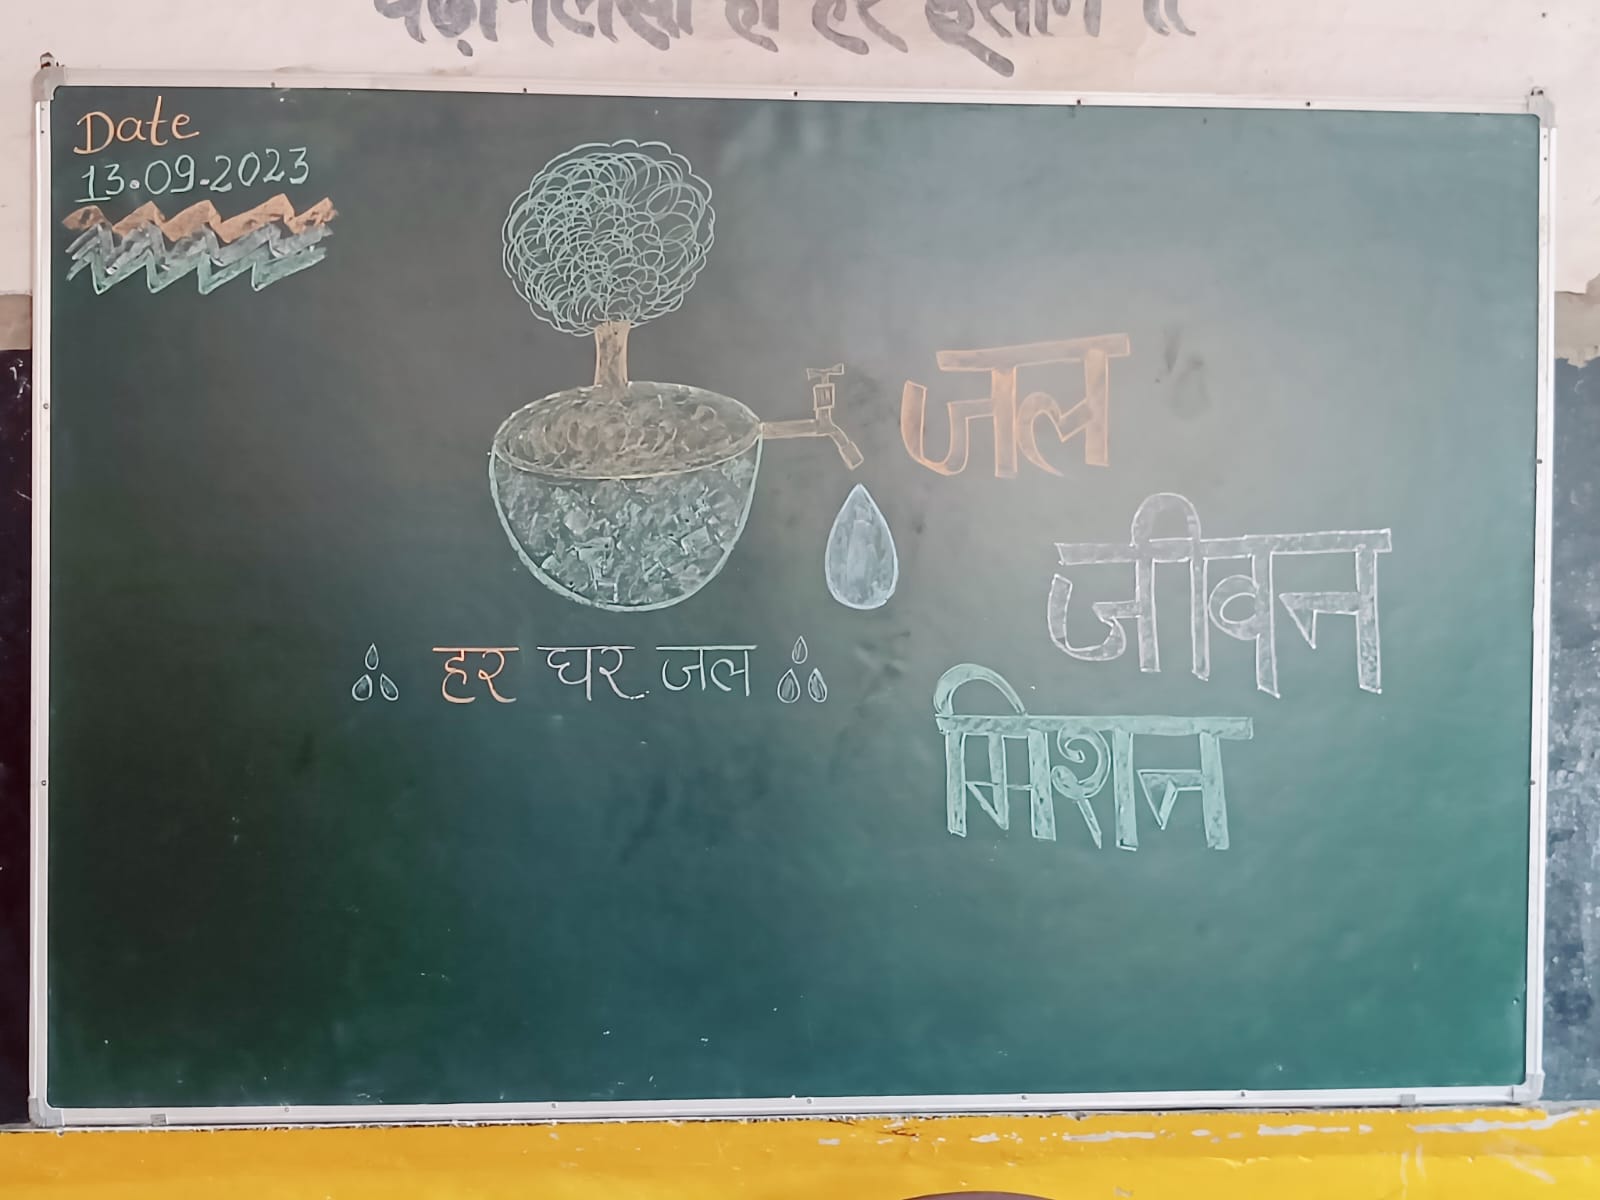 Date
13.09.2023
जल
जीवन
मिशन
हर घर जल